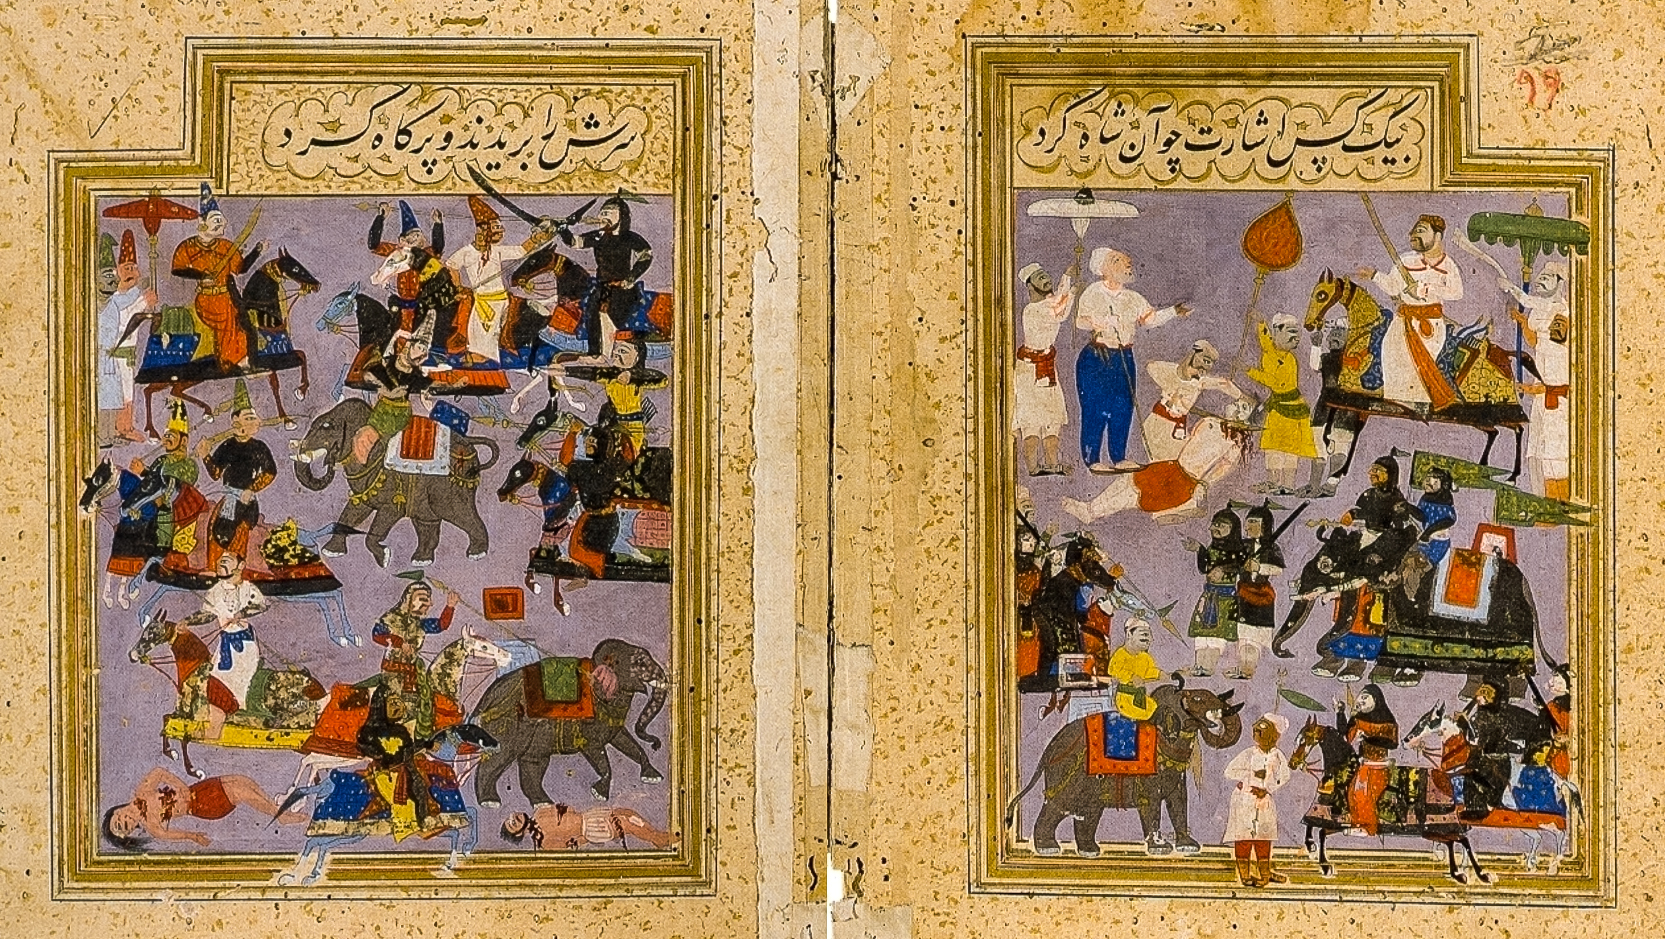 بیک کس اشارت چو آن شاه کرد
سرش را بریدند و پر کاه کرد